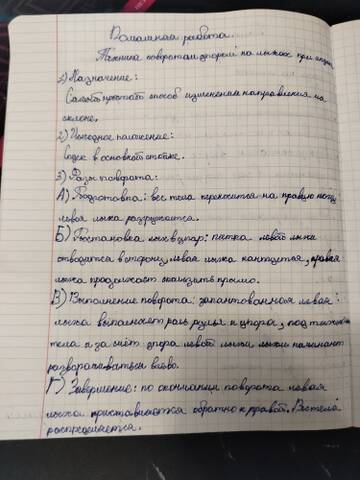 Домашняя работа.
Техника поворотом упором на лыжах при спуске
1) Назначение:
Самый простой способ изменения направления на
склоне.
2) Исходное положение:
Спуск в основной стойке.
3) Фазы поворота:
А) Подготовка: вес тела переносится на правую ногу
левая лыжа разгружается.
Б) Постановка лыж в упор: пятка левой лыжи
отводится в сторону, левая лыжа кантуется, правая
лыжа продолжает скользить прямо.
В) Выполнение поворота: закантованная левая
лыжа выполняет роль руля и упора, под тяжестью
тела и за счёт упора левой лыжи лыжи начинают
разворачиваться влево.
Г) Завершение: по окончании поворота левая
лыжа приставляется обратно к правой. Вес тела
распределяется.